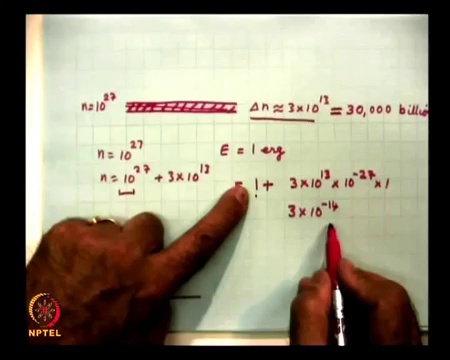 n=10²⁷ Δn ≈ 3×10¹³ = 30,000 billi
n = 10²⁷ E = 1 erg
n = 10²⁷ + 3×10¹³
= 1 + 3×10¹³ × 10⁻²⁷ × 1
3×10⁻¹⁴
NPTEL